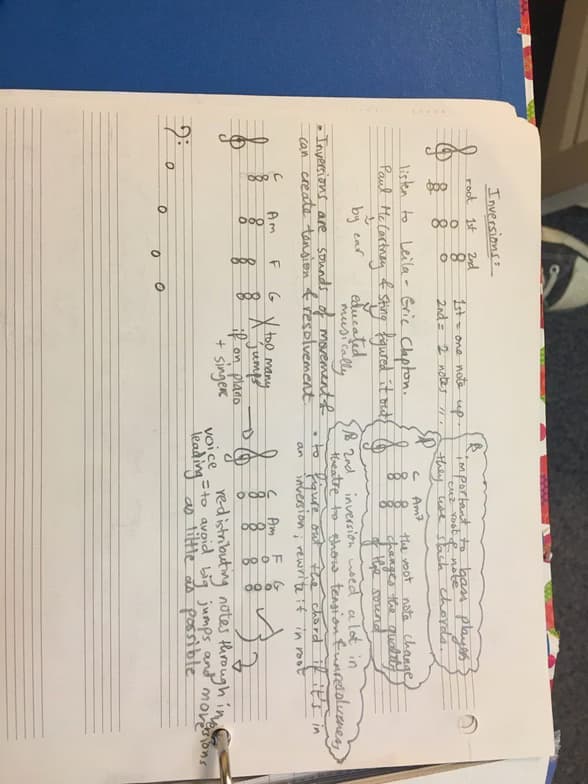 Inversions:
root 1st 2nd
1st = one note up.
2nd = 2 notes ".
important to bass players
cuz root note
they use slash chords.
listen to Leila - Eric Clapton.
Paul McCartney & Sting figured it out
by ear
educated musically
C Am7
the root note change
changes the quality
of the sound
2nd inversion used a lot in
theatre to show tension & unresolveness
• Inversions are sounds of movement &
can create tension & resolvement.
• to figure out the chord if it's in
an inversion, rewrite it in root
C Am F G
X too many
jumps
if on piano
+ singers
C Am F G
voice leading = redistributing notes through inversions
to avoid big jumps and move
as little as possible